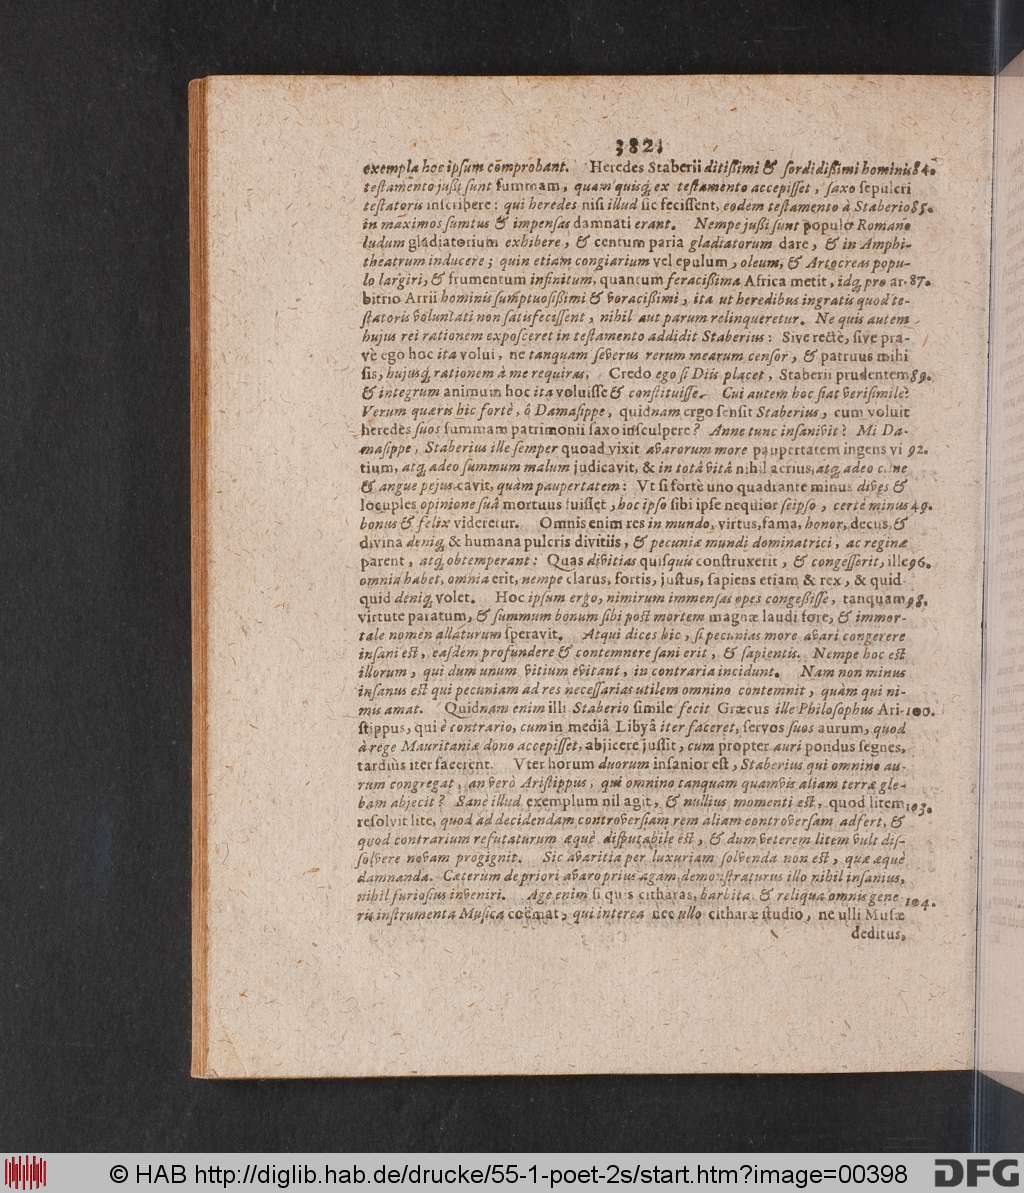 382.
exempla hoc ipsum comprobant. Heredes Staberii ditißimi & sordidißimi hominis 84.
testamento jußi sunt summam, quam quisq́; ex testamento accepisset, saxo sepulcri
testatoris inscribere: qui heredes nisi illud sic fecissent, eodem testamento à Staberio 85.
in maximos sumtus & impensas damnati erant. Nempe jußi sunt populo Romano
ludum gladiatorium exhibere, & centum paria gladiatorum dare, & in Amphi-
theatrum inducere; quin etiam congiarium vel epulum, oleum, & Artocreas popu-
lo largiri, & frumentum infinitum, quantum feracißima Africa metit, idq́; pro ar- 87.
bitrio Arrii hominis sumptuosißimi & voracißimi, ita ut heredibus ingratis quod te-
statoris voluntati non satisfecissent, nihil aut parum relinqueretur. Ne quis autem
hujus rei rationem exposceret in testamento addidit Staberius: Sive rectè, sive pra-
vè ego hoc ita volui, ne tanquam severus rerum mearum censor, & patruus mihi
sis, hujusq́; rationem à me requiras. Credo ego si Diis placet, Staberii prudentem 89.
& integrum animum hoc ita voluisse & constituisse. Cui autem hoc fiat verisimile?
Verum quæris hic fortè, ô Damasippe, quidnam ergo sensit Staberius, cum voluit
heredes suos summam patrimonii saxo insculpere? Anne tunc insanivit? Mi Da-
masippe, Staberius ille semper quoad vixit avarorum more paupertatem ingens vi 92.
tium, atq́; adeo summum malum judicavit, & in totâ vitâ nihil acrius, atq́; adeo cane
& angue pejus cavit, quàm paupertatem: Vt si fortè uno quadrante minus dives &
locuples opinione suâ mortuus fuisset, hoc ipso sibi ipse nequior seipso, certè minus 49.
bonus & felix videretur. Omnis enim res in mundo, virtus, fama, honor, decus, &
divina deniq́; & humana pulcris divitiis, & pecuniæ mundi dominatrici, ac reginæ
parent, atq́; obtemperant: Quas divitias quisquis construxerit, & congesserit, ille 96.
omnia habet, omnia erit, nempe clarus, fortis, justus, sapiens etiam & rex, & quid-
quid deniq́; volet. Hoc ipsum ergo, nimirum immensas opes congeßisse, tanquam 98.
virtute paratum, & summum bonum sibi post mortem magnæ laudi fore, & immor-
tale nomen allaturum speravit. Atqui dices hic, si pecunias more avari congerere
insani est, easdem profundere & contemnere sani erit, & sapientis. Nempe hoc est
illorum, qui dum unum vitium evitant, in contraria incidunt. Nam non minus
insanus est qui pecuniam ad res necessarias utilem omnino contemnit, quàm qui ni-
mis amat. Quidnam enim illi Staberio simile fecit Græcus ille Philosophus Ari- 100.
stippus, qui è contrario, cum in mediâ Libyâ iter faceret, servos suos aurum, quod
à rege Mauritaniæ dono accepisset, abjicere jussit, cum propter auri pondus segnes,
tardiùs iter facerent. Vter horum duorum insanior est, Staberius qui omnino au-
rum congregat, an verò Aristippus, qui omnino tanquam quamvis aliam terræ gle-
bam abjecit? Sanè illud exemplum nil agit, & nullius momenti est, quod litem 103.
resolvit lite, quod ad decidendam controversiam rem aliam controversam adfert, &
quod contrarium refutaturum æquè disputabile est, & dum veterem litem vult dis-
solvere novam progignit. Sic avaritia per luxuriam solvenda non est, quæ æquè
damnanda. Cæterum de priori avaro prius agam demonstraturus illo nihil insanius,
nihil furiosius inveniri. Age enim si quis citharas, barbita & reliqua omnis gene 104.
ris instrumenta Musica coëmat, qui interea nec ullo citharæ studio, ne ulli Musæ
deditus,
© HAB http://diglib.hab.de/drucke/55-1-poet-2s/start.htm?image=00398
DFG